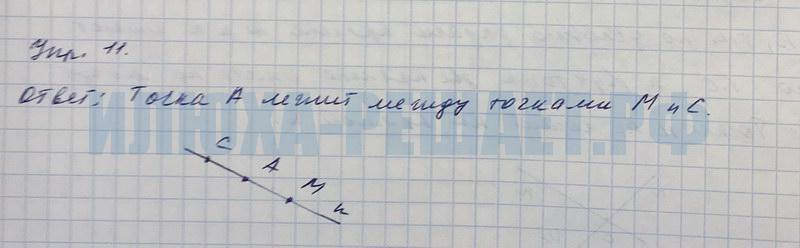 Упр. 11.
Ответ: Точка А лежит между точками М и С.
ИЛЮХА-РЕШАЕТ.РФ
С
А
М
к